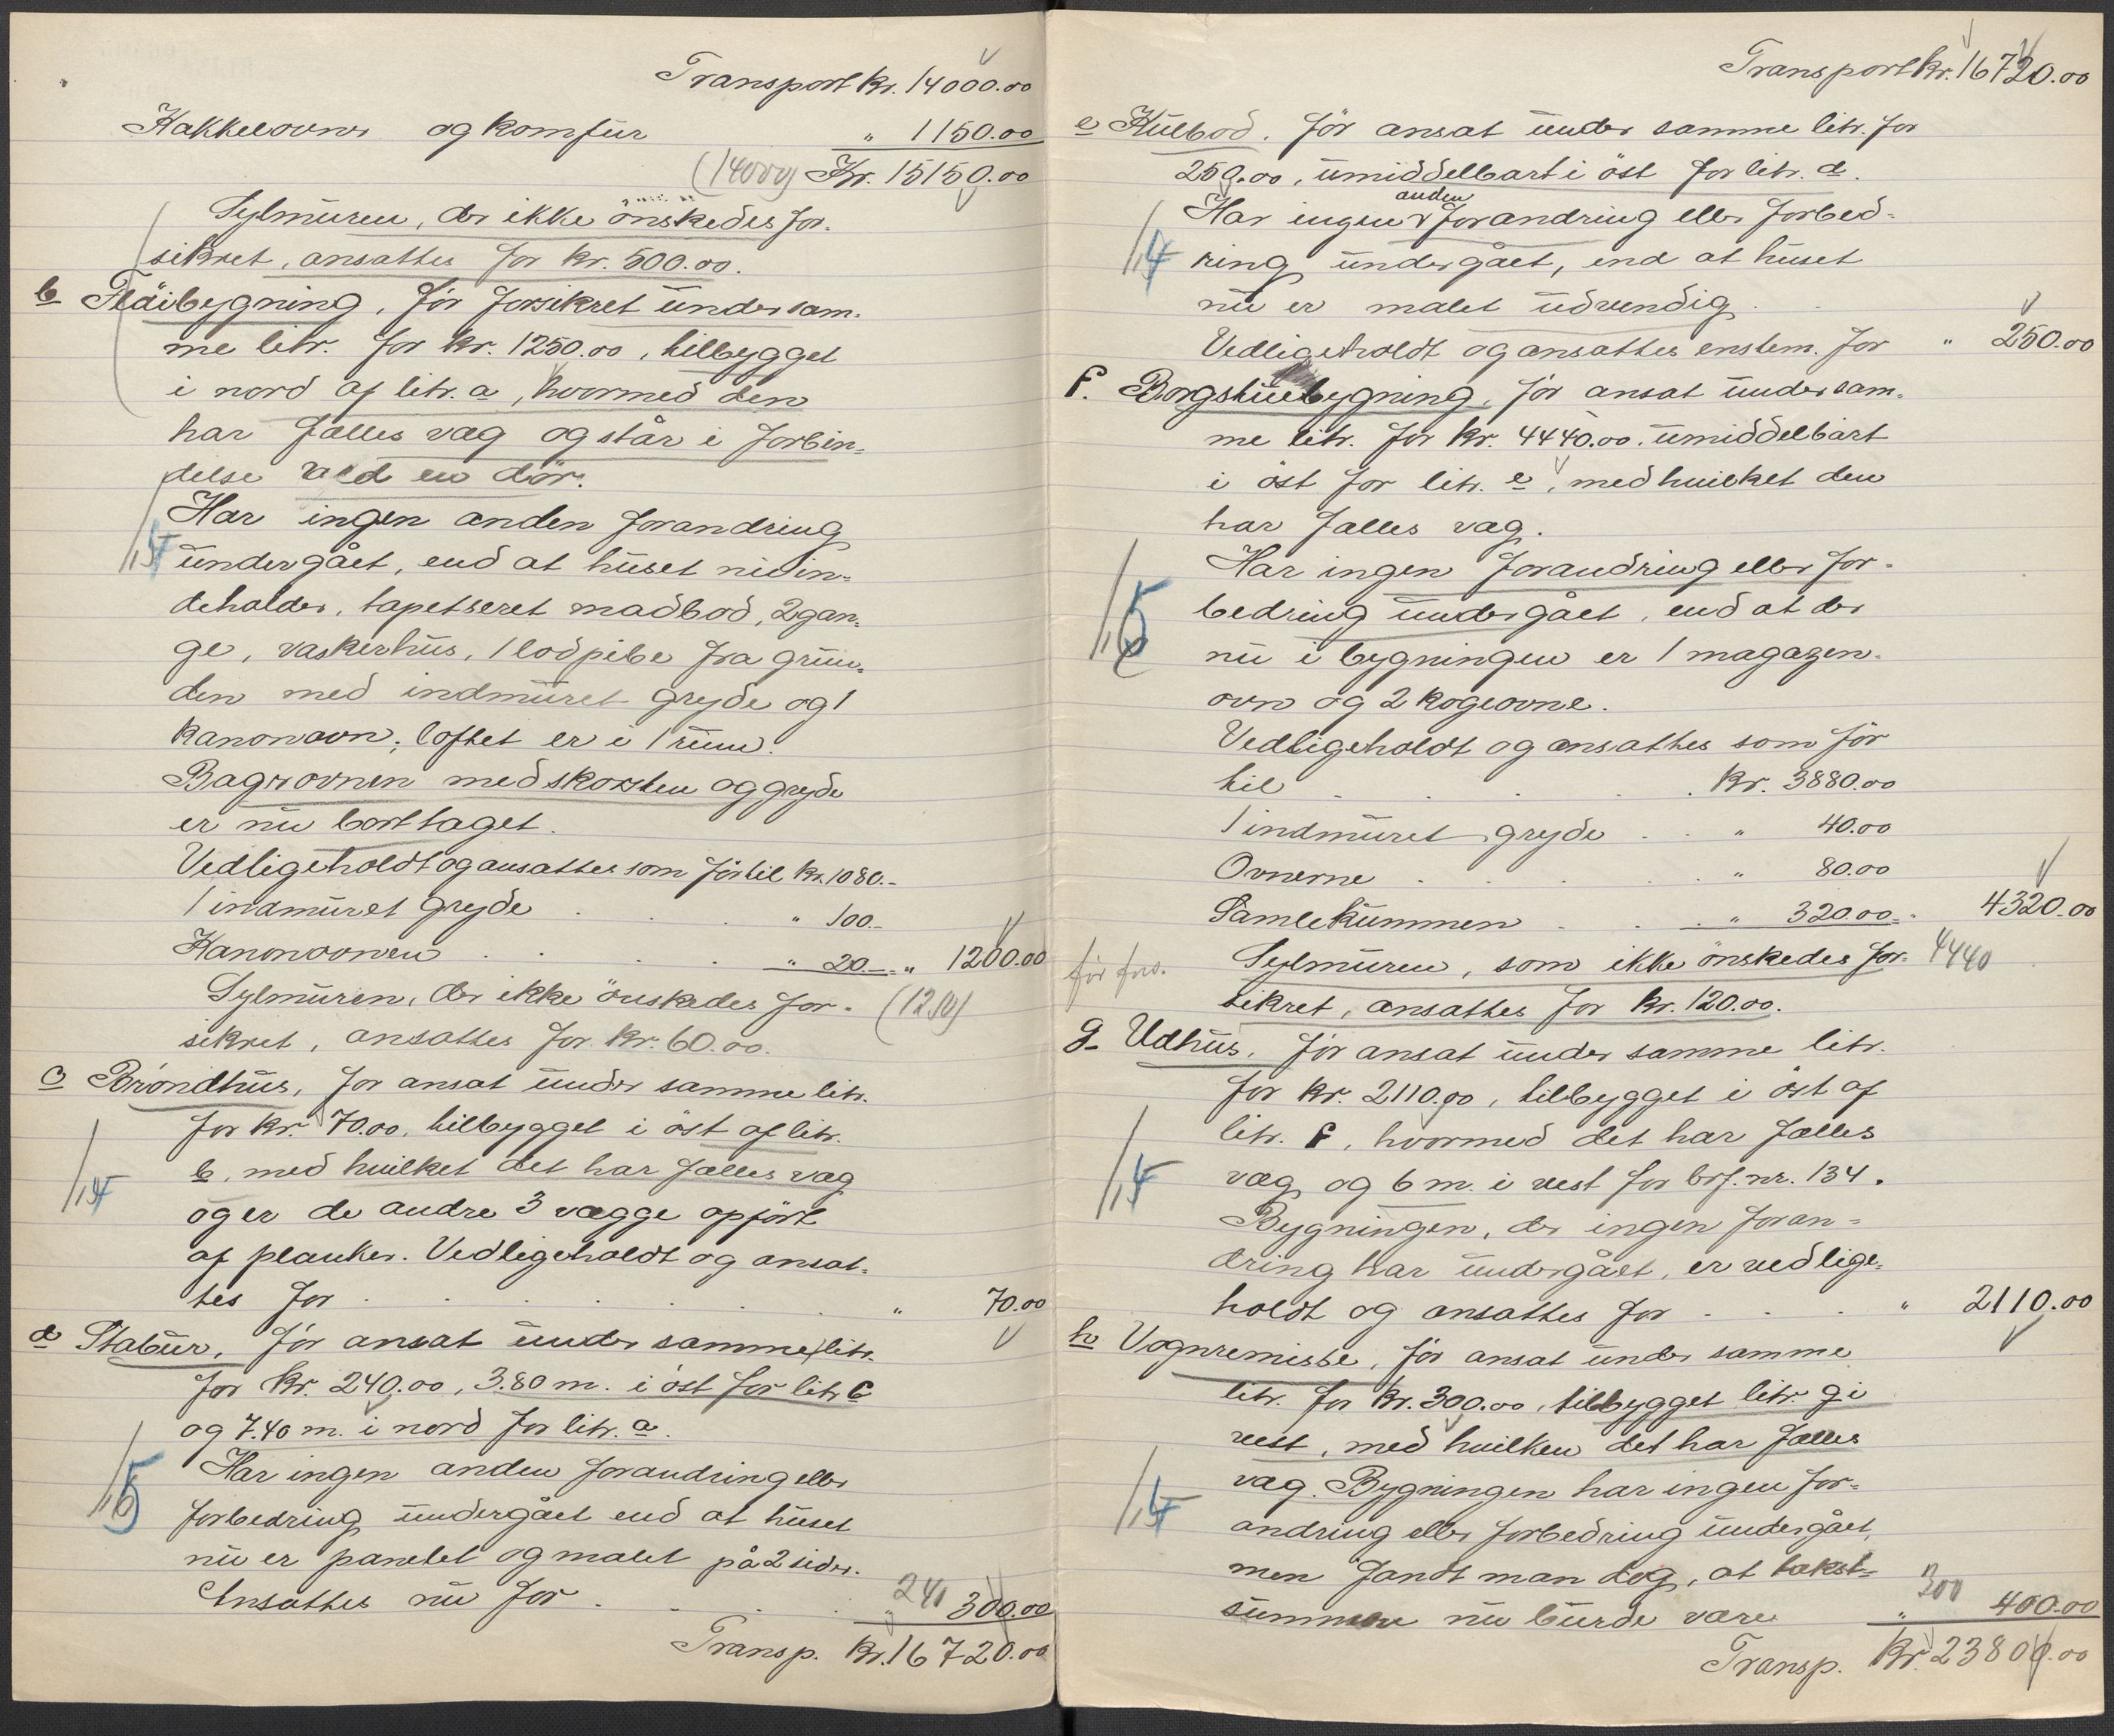 Transport kr. 14000.00
Kakkelovner og komfur " 1150.00
(14000) Kr. 15150.00
Sylmuren, der ikke önskedes for-
sikret, ansattes for kr. 500.00.
b Flöibygning, för forsikret under sam-
me litr. for kr. 1250.00, tilbygget
i nord af litr. a, hvormed den
har fælles væg og står i forbin-
delse ved en dör.
Har ingen anden forandring
undergået, end at huset nu in-
deholder, tapetseret madbod, 2 gan-
ge, vaskerhus, 1 lodpibe fra grun-
den med indmuret gryde og 1
kanonovn; loftet er i 1 rum.
Bagerovnen med skorsten og gryde
er nu borttaget.
Vedligeholdt og ansattes som för til kr. 1080.-
1 indmuret gryde . . . " 100.-
Kanonovnen . . . . " 20.- " 1200.00
Sylmuren, der ikke önskedes for- (1250)
sikret, ansattes for kr. 60.00.
c Bröndhus, för ansat under samme litr.
for kr. 70.00, tilbygget i öst af litr.
b, med hvilket det har fælles væg
og er de andre 3 vægge opfört
af planker. Vedligeholdt og ansat-
tes for . . . . . . " 70.00
d Stabur, för ansat under samme litr.
for kr. 240.00, 3.80 m. i öst for litr. c
og 7.40 m. i nord for litr. a.
Har ingen anden forandring eller
forbedring undergået end at huset
nu er panelet og malet på 2 sider.
Ansattes nu for . . . . 240 " 300.00
Transp. kr. 16720.00
Transport kr. 16720.00
e Kulbod. för ansat under samme litr. for
250.00, umiddelbart i öst for litr. d.
anden
Har ingen v forandring eller forbed-
14 ring undergået, end at huset
nu er malet udvendig . .
Vedligeholdt og ansattes enstem. for " 250.00
f. Borgstuebygning, för ansat under sam-
me litr. for kr. 4440.00. umiddelbart
i öst for litr. e, med hvilket den
har fælles væg.
Har ingen forandring eller for-
bedring undergået, end at der
nu i bygningen er 1 magazin-
ovn og 2 kogeovne.
Vedligeholdt og ansattes som för
til . . . . . kr. 3880.00
1 indmuret gryde . . " 40.00
Ovnerne . . . . . " 80.00
Samlekummen . . . " 320.00 " 4320.00
för fors. Sylmuren, som ikke önskedes for- 4440
sikret, ansattes for kr. 120.00.
g. Udhus, för ansat under samme litr.
for kr. 2110.00, tilbygget i öst af
litr. f, hvormed det har fælles
væg og 6 m. i vest for brf. nr. 134.
Bygningen, der ingen foran-
dring har undergået, er vedlige-
holdt og ansattes for . . . " 2110.00
h Vognremisse, för ansat under samme
litr. for kr. 300.00, tilbygget litr. g i
vest, med hvilken det har fælles
væg. Bygningen har ingen for-
andring eller forbedring undergået,
men fandt man dog, at takst-
summen nu burde være 300 " 400.00
Transp. kr. 23800.00